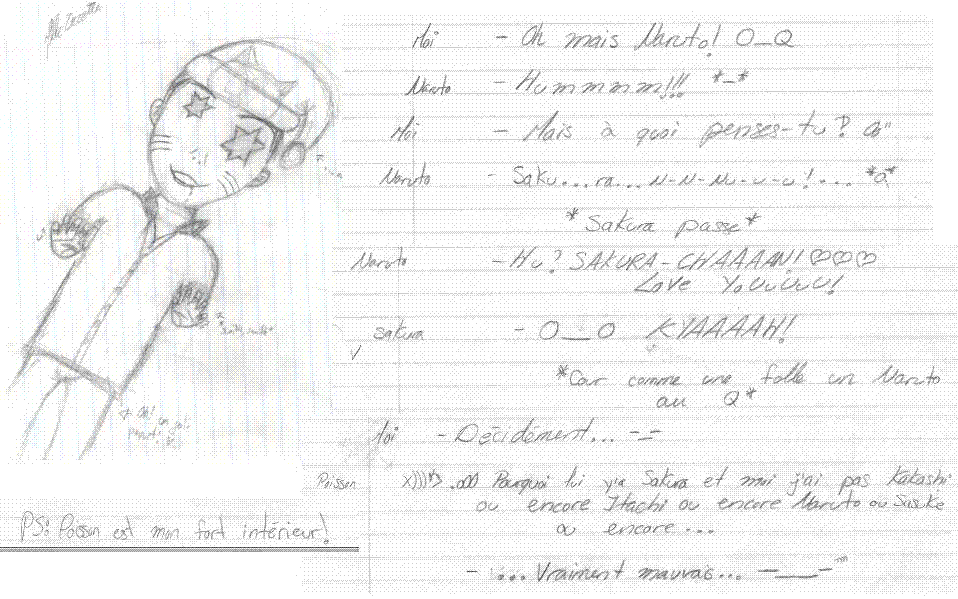 Moi - Oh mais Naruto! O_Q
Naruto - Hummmm!!! *-*
Moi - Mais à quoi penses-tu?
Naruto - Saku...ra... N-N-Nu-u-u!...
*Sakura passe*
Naruto - Hu? SAKURA-CHAAAAN! ♡♡♡
Love YoUuUuU!
Sakura - O__O KYAAAAH!
*Cour comme une folle un Naruto
au Q*
Moi - Décidément... -_-
Poisson Pourquoi lui y'a Sakura et moi j'ai pas Kakashi
ou encore Itachi ou encore Naruto ou Sasuke
ou encore...
- ... Vraiment mauvais... -___-"
PS: Poisson est mon fort intérieur!